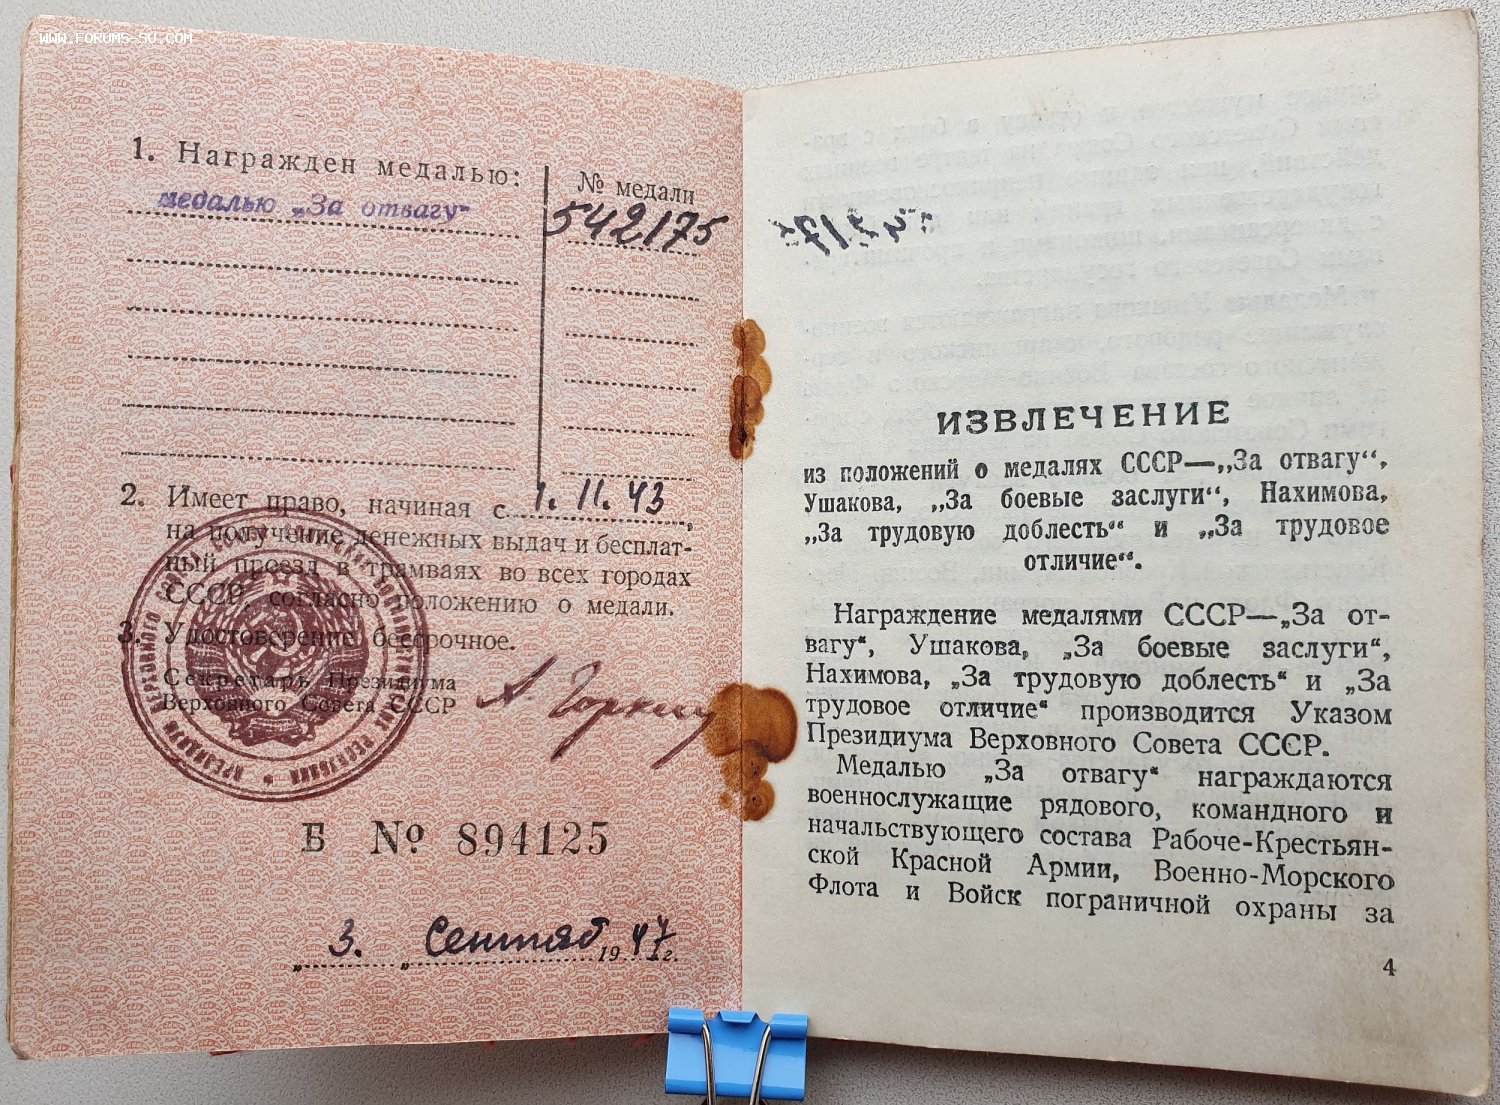 WWW.FORUMS-SU.COM
1. Награжден медалью:
№ медали
медалью „За отвагу“
542175
2. Имеет право, начиная с 1. 11. 43,
на получение денежных выдач и бесплат-
ный проезд в трамваях во всех городах
СССР, согласно положению о медали.
3. Удостоверение бессрочное.
Секретарь Президиума
Верховного Совета СССР
А Горкин
Б № 894125
„3. „ Сентяб 1947 г.
ИЗВЛЕЧЕНИЕ
из положений о медалях СССР—„За отвагу“,
Ушакова, „За боевые заслуги“, Нахимова,
„За трудовую доблесть“ и „За трудовое
отличие“.
Награждение медалями СССР—„За от-
вагу“, Ушакова, „За боевые заслуги“,
Нахимова, „За трудовую доблесть“ и „За
трудовое отличие“ производится Указом
Президиума Верховного Совета СССР.
Медалью „За отвагу“ награждаются
военнослужащие рядового, командного и
начальствующего состава Рабоче-Крестьян-
ской Красной Армии, Военно-Морского
Флота и Войск пограничной охраны за
4